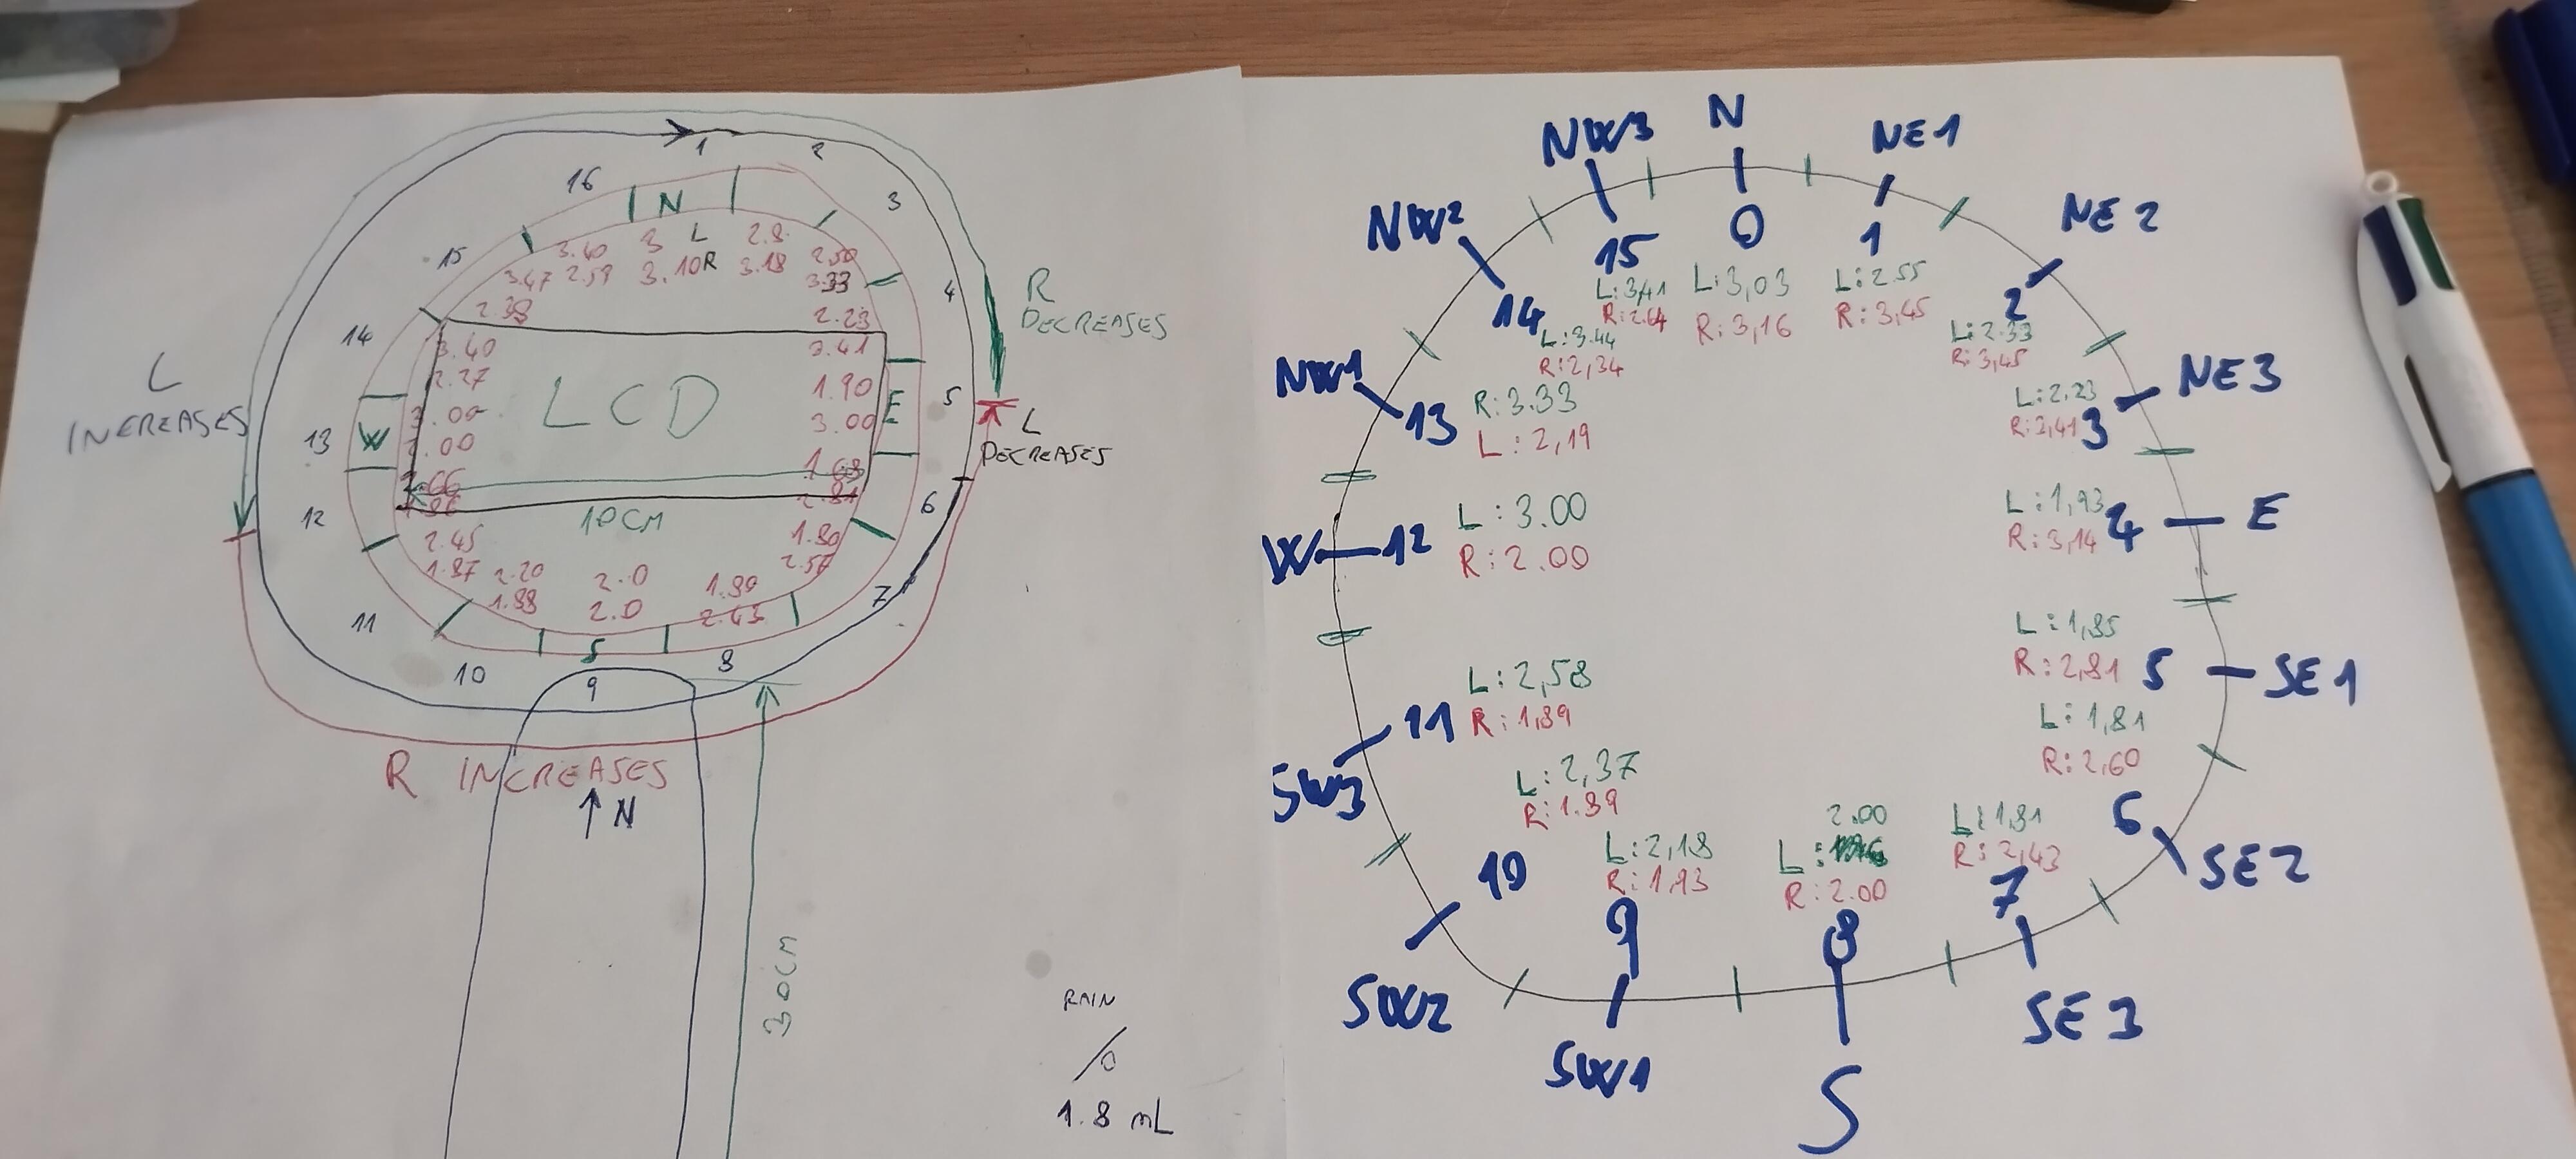 1
2
3
4
5
6
7
8
9
10
11
12
13
14
15
16
N
3.40
3 L
2.8
2.50
3.47
2.59
3.10R
3.18
3.33
2.38
2.23
3.40
3.41
2.27
1.90
LCD
3.00
W
E
1.68
10CM
2.45
1.80
1.87
2.20
2.0
1.89
1.88
2.0
2.43
S
L
INEREASES
R
DECREASES
L
DECREASES
R INCREASES
↑ N
30CM
RAIN
1.8 mL
N
0
L:3,03
R:3,16
NE1
1
L:2.55
R:3,45
NE 2
2
L:2.33
R:3,45
NE3
3
L:2,23
R:3,41
E
4
L:1,93
R:3,14
SE1
5
L:1,85
R:2,81
SE2
6
L:1,81
R:2,60
SE 3
7
L:1,81
R:2,43
S
8
2.00
L:
R:2.00
SW1
9
L:2,18
R:1,93
SW2
10
L:2,37
R:1.89
SW3
11
L:2,58
R:1,89
W
12
L:3.00
R:2.00
NW1
13
R:3.33
L:2,19
NW2
14
L:3.44
R:2,34
NW3
15
L:3,41
R:2.64